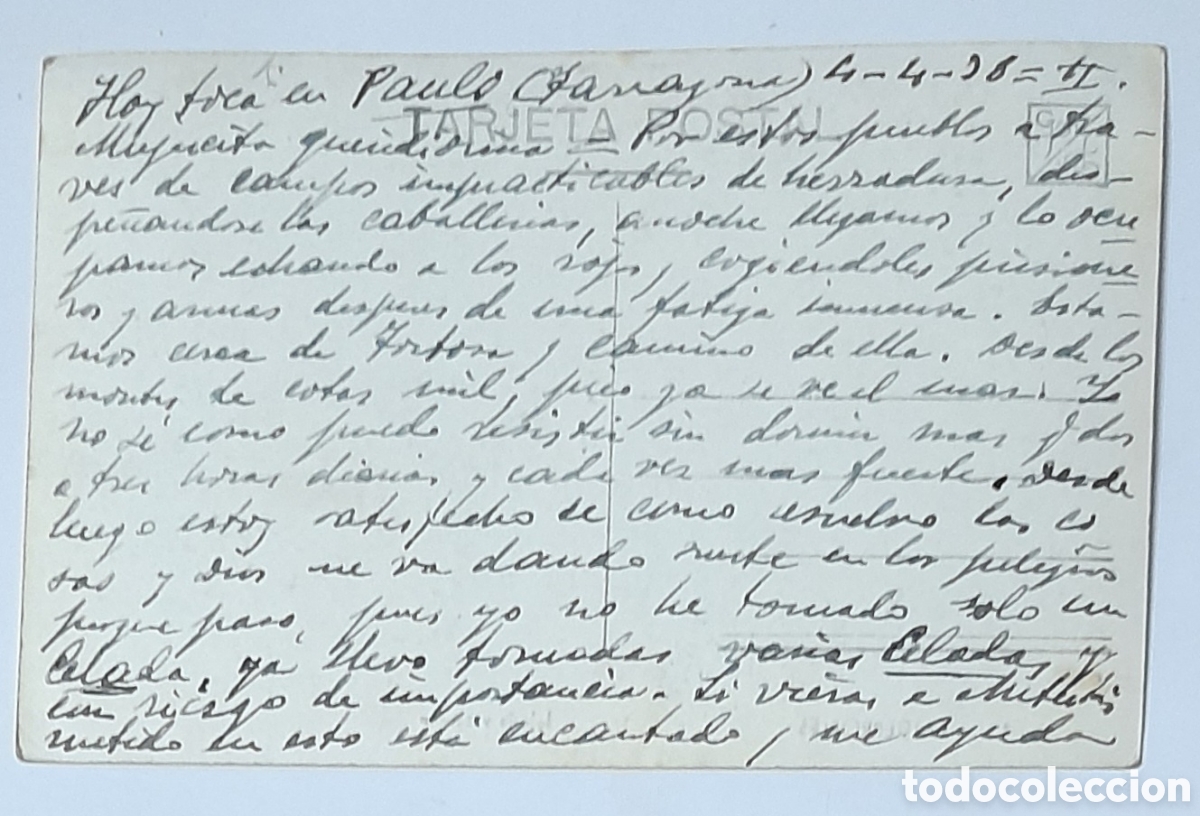 Hoy toca en Paulo (Tarragona) 4-4-38=II.
TARJETA POSTAL
Mujercita queridisima = Por estos pueblos a tra-
ves de campos impracticables de herradura, des-
peñandose las caballerias, anoche llegamos y lo ocu
pamos echando a los rojos, cogiendoles prisione
ros y armas despues de una fatiga inmensa. Esta-
mos cerca de Tortosa y camino de ella. Desde los
montes de cotas mil, pico ya se ve el mar. Yo
no sé como puedo resistir sin dormir mas q dos
o tres horas diarias y cada vez mas fuerte. Desde
luego estoy satisfecho de como resuelvo las co
sas y Dios me va dando suerte en los peligros
porque paso, pues yo no he tomado solo un
Celada, ya llevo tomadas varias Celadas y
con riesgo de importancia. Si vieras a
metido en esto está encantado, me ayuda
todocoleccion